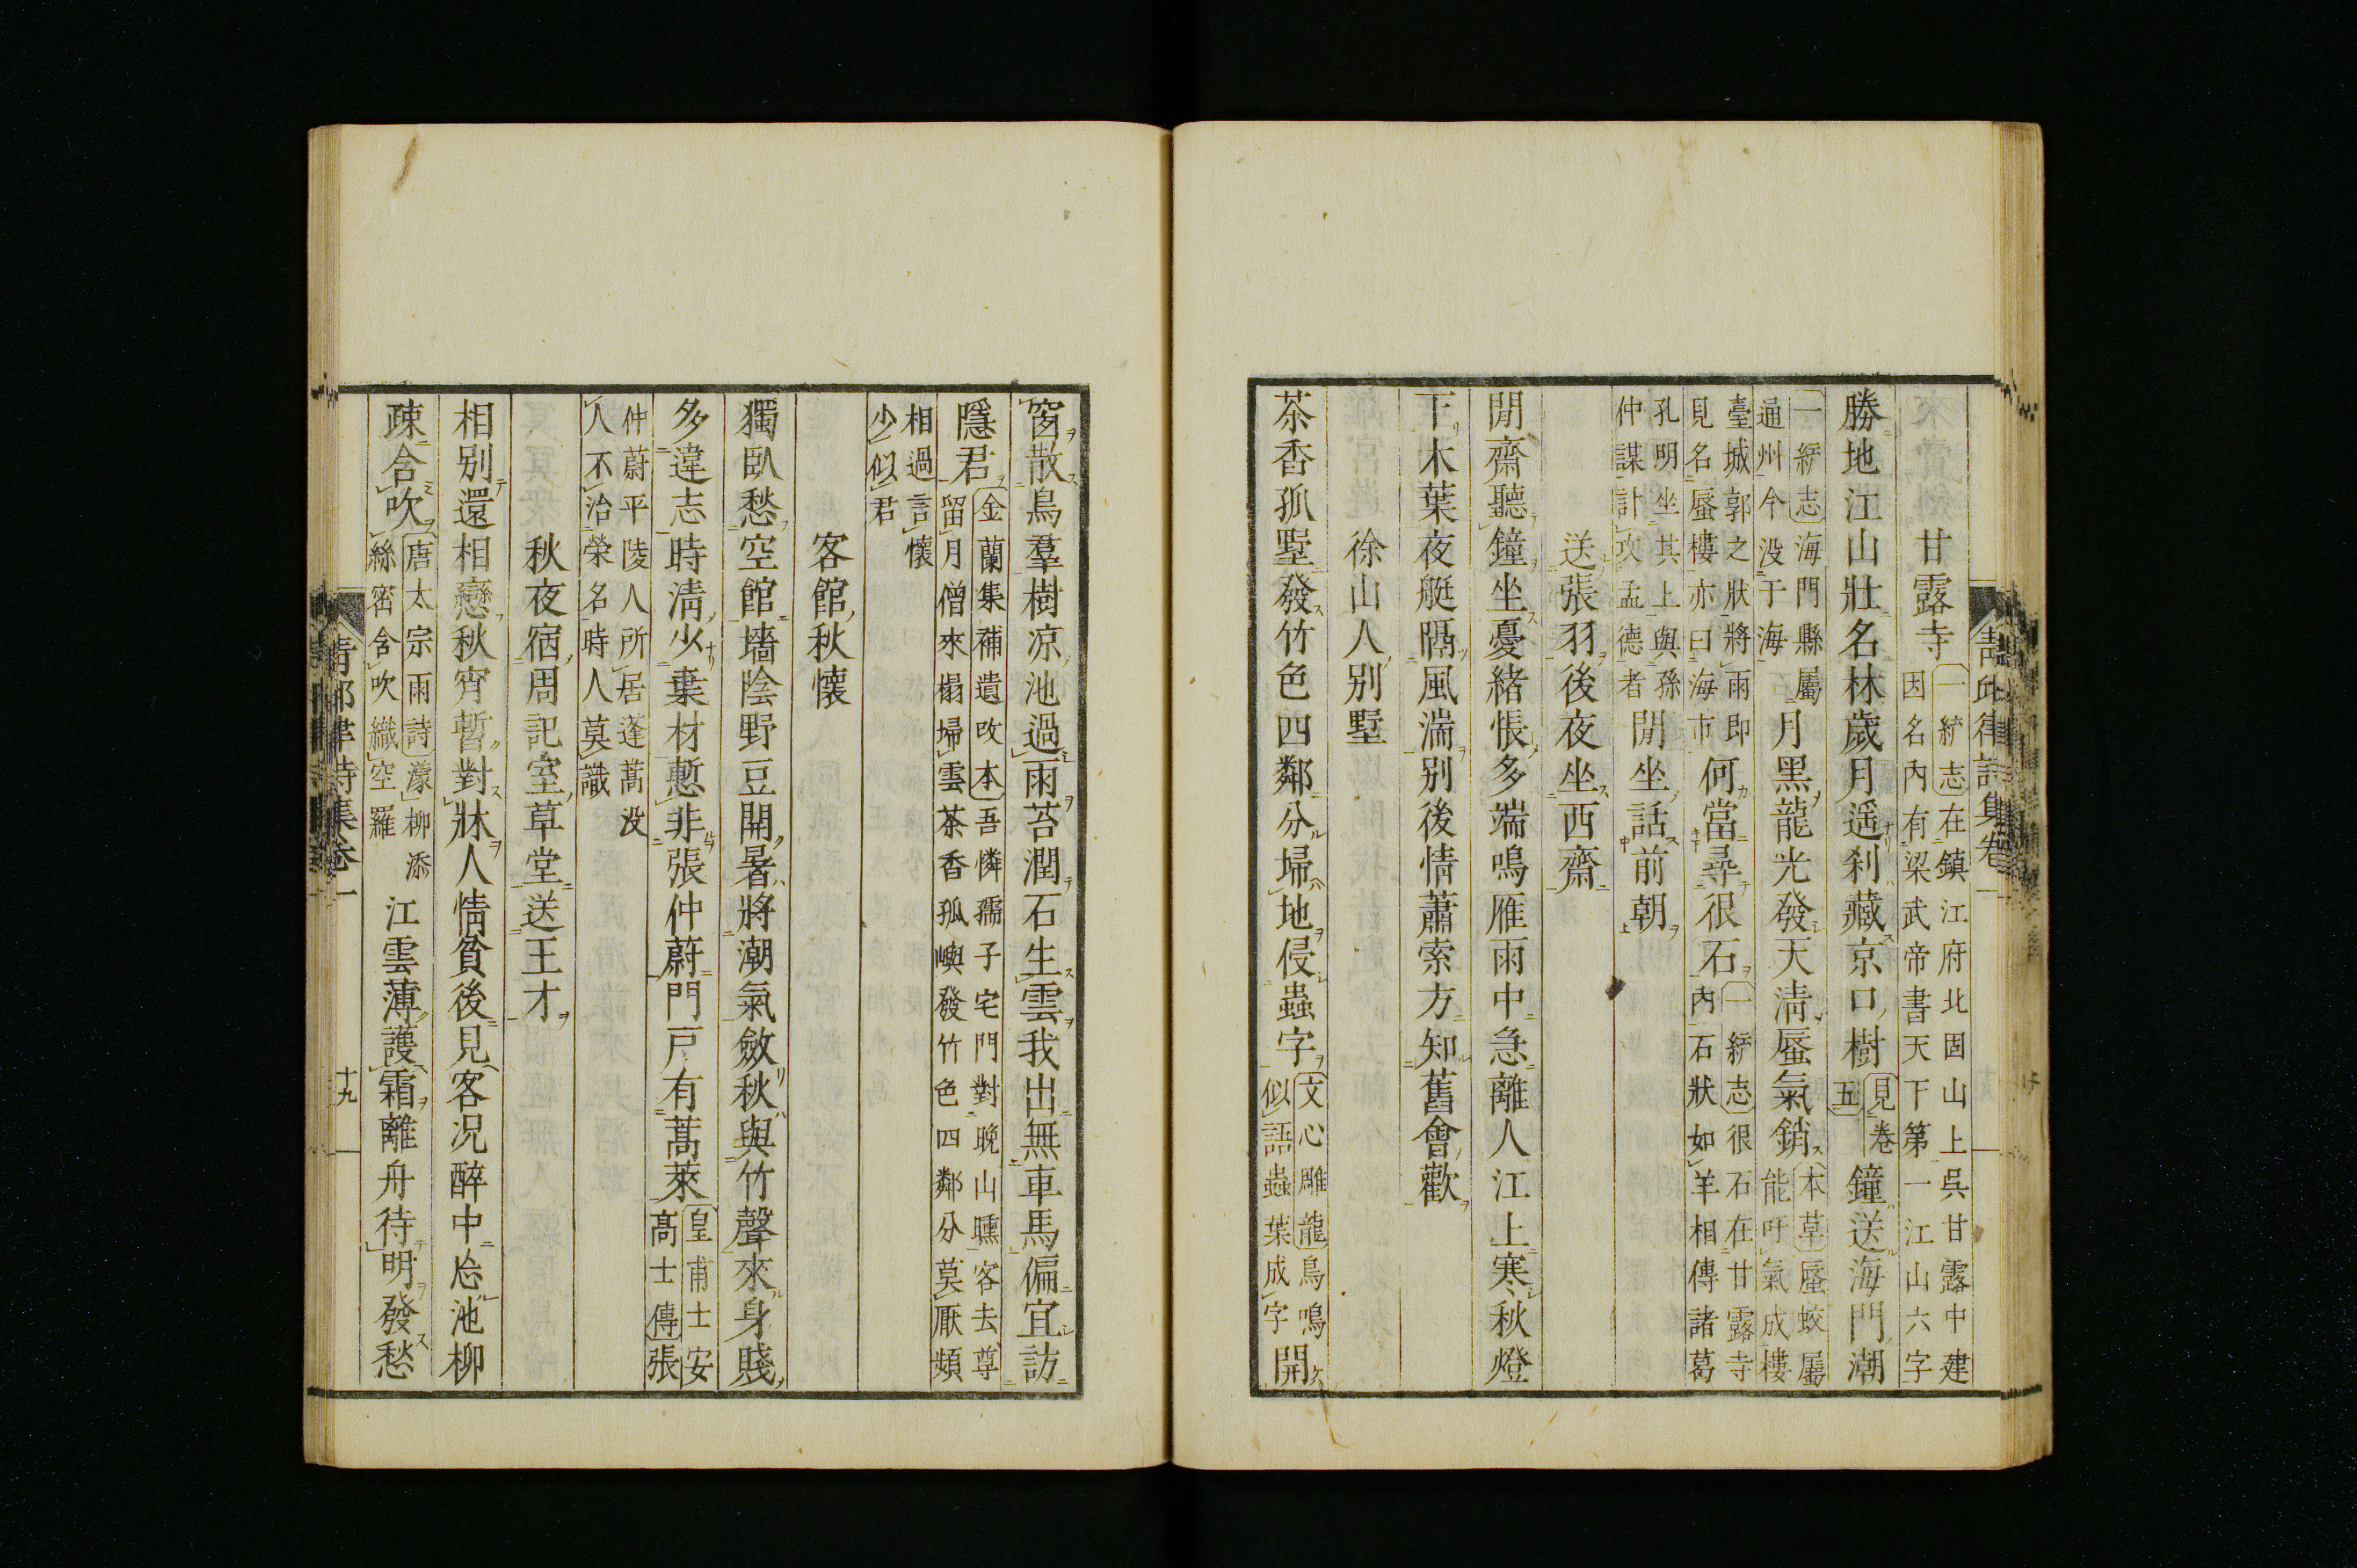 甘露寺 一統志在鎮江府北固山上吳甘露中建
因名內有梁武帝書天下第一江山六字
勝地江山壯名林歲月遥刹藏京口樹 見卷
五 鐘送海門潮
一統志海門縣屬
通州今没于海 月黑龍光發天淸蜃氣銷 本草蜃蛟屬
能吁氣成樓
臺城郭之狀將雨即
見名蜃樓亦曰海市 何當尋很石 一統志很石在甘露寺
內石狀如羊相傳諸葛
孔明坐其上與孫
仲謀計攻孟德者 閒坐話前朝
送張羽後夜坐西齋
閒齋聽鐘坐憂緒悵多端鳴雁雨中急離人江上寒秋燈
下木葉夜艇隔風湍别後情蕭索方知舊會歡
徐山人别墅
茶香孤墅發竹色四鄰分埽地侵蟲字 文心雕龍鳥鳴
似語蟲葉成字 開
窗散鳥羣樹凉池過雨苔潤石生雲我出無車馬偏宜訪
隱君 金蘭集補遺改本吾憐孺子宅門對晩山曛客去尊
留月僧來榻埽雲茶香孤嶼發竹色四鄰分莫厭頻
相過言懐
少似君
客館秋懐
獨臥愁空館墻陰野豆開暑將潮氣斂秋與竹聲來身賤
多違志時淸少棄材慙非張仲蔚門戸有蒿萊 皇甫士安
高士傳張
仲蔚平陵人所居蓬蒿没
人不治榮名時人莫識
秋夜宿周記室草堂送王才
相別還相戀秋宵暫對牀人情貧後見客况醉中忘池柳
疎含吹 唐太宗雨詩濛柳添
絲密含吹織空羅 江雲薄護霜離舟待明發愁
靑邱律詩集卷一
十九